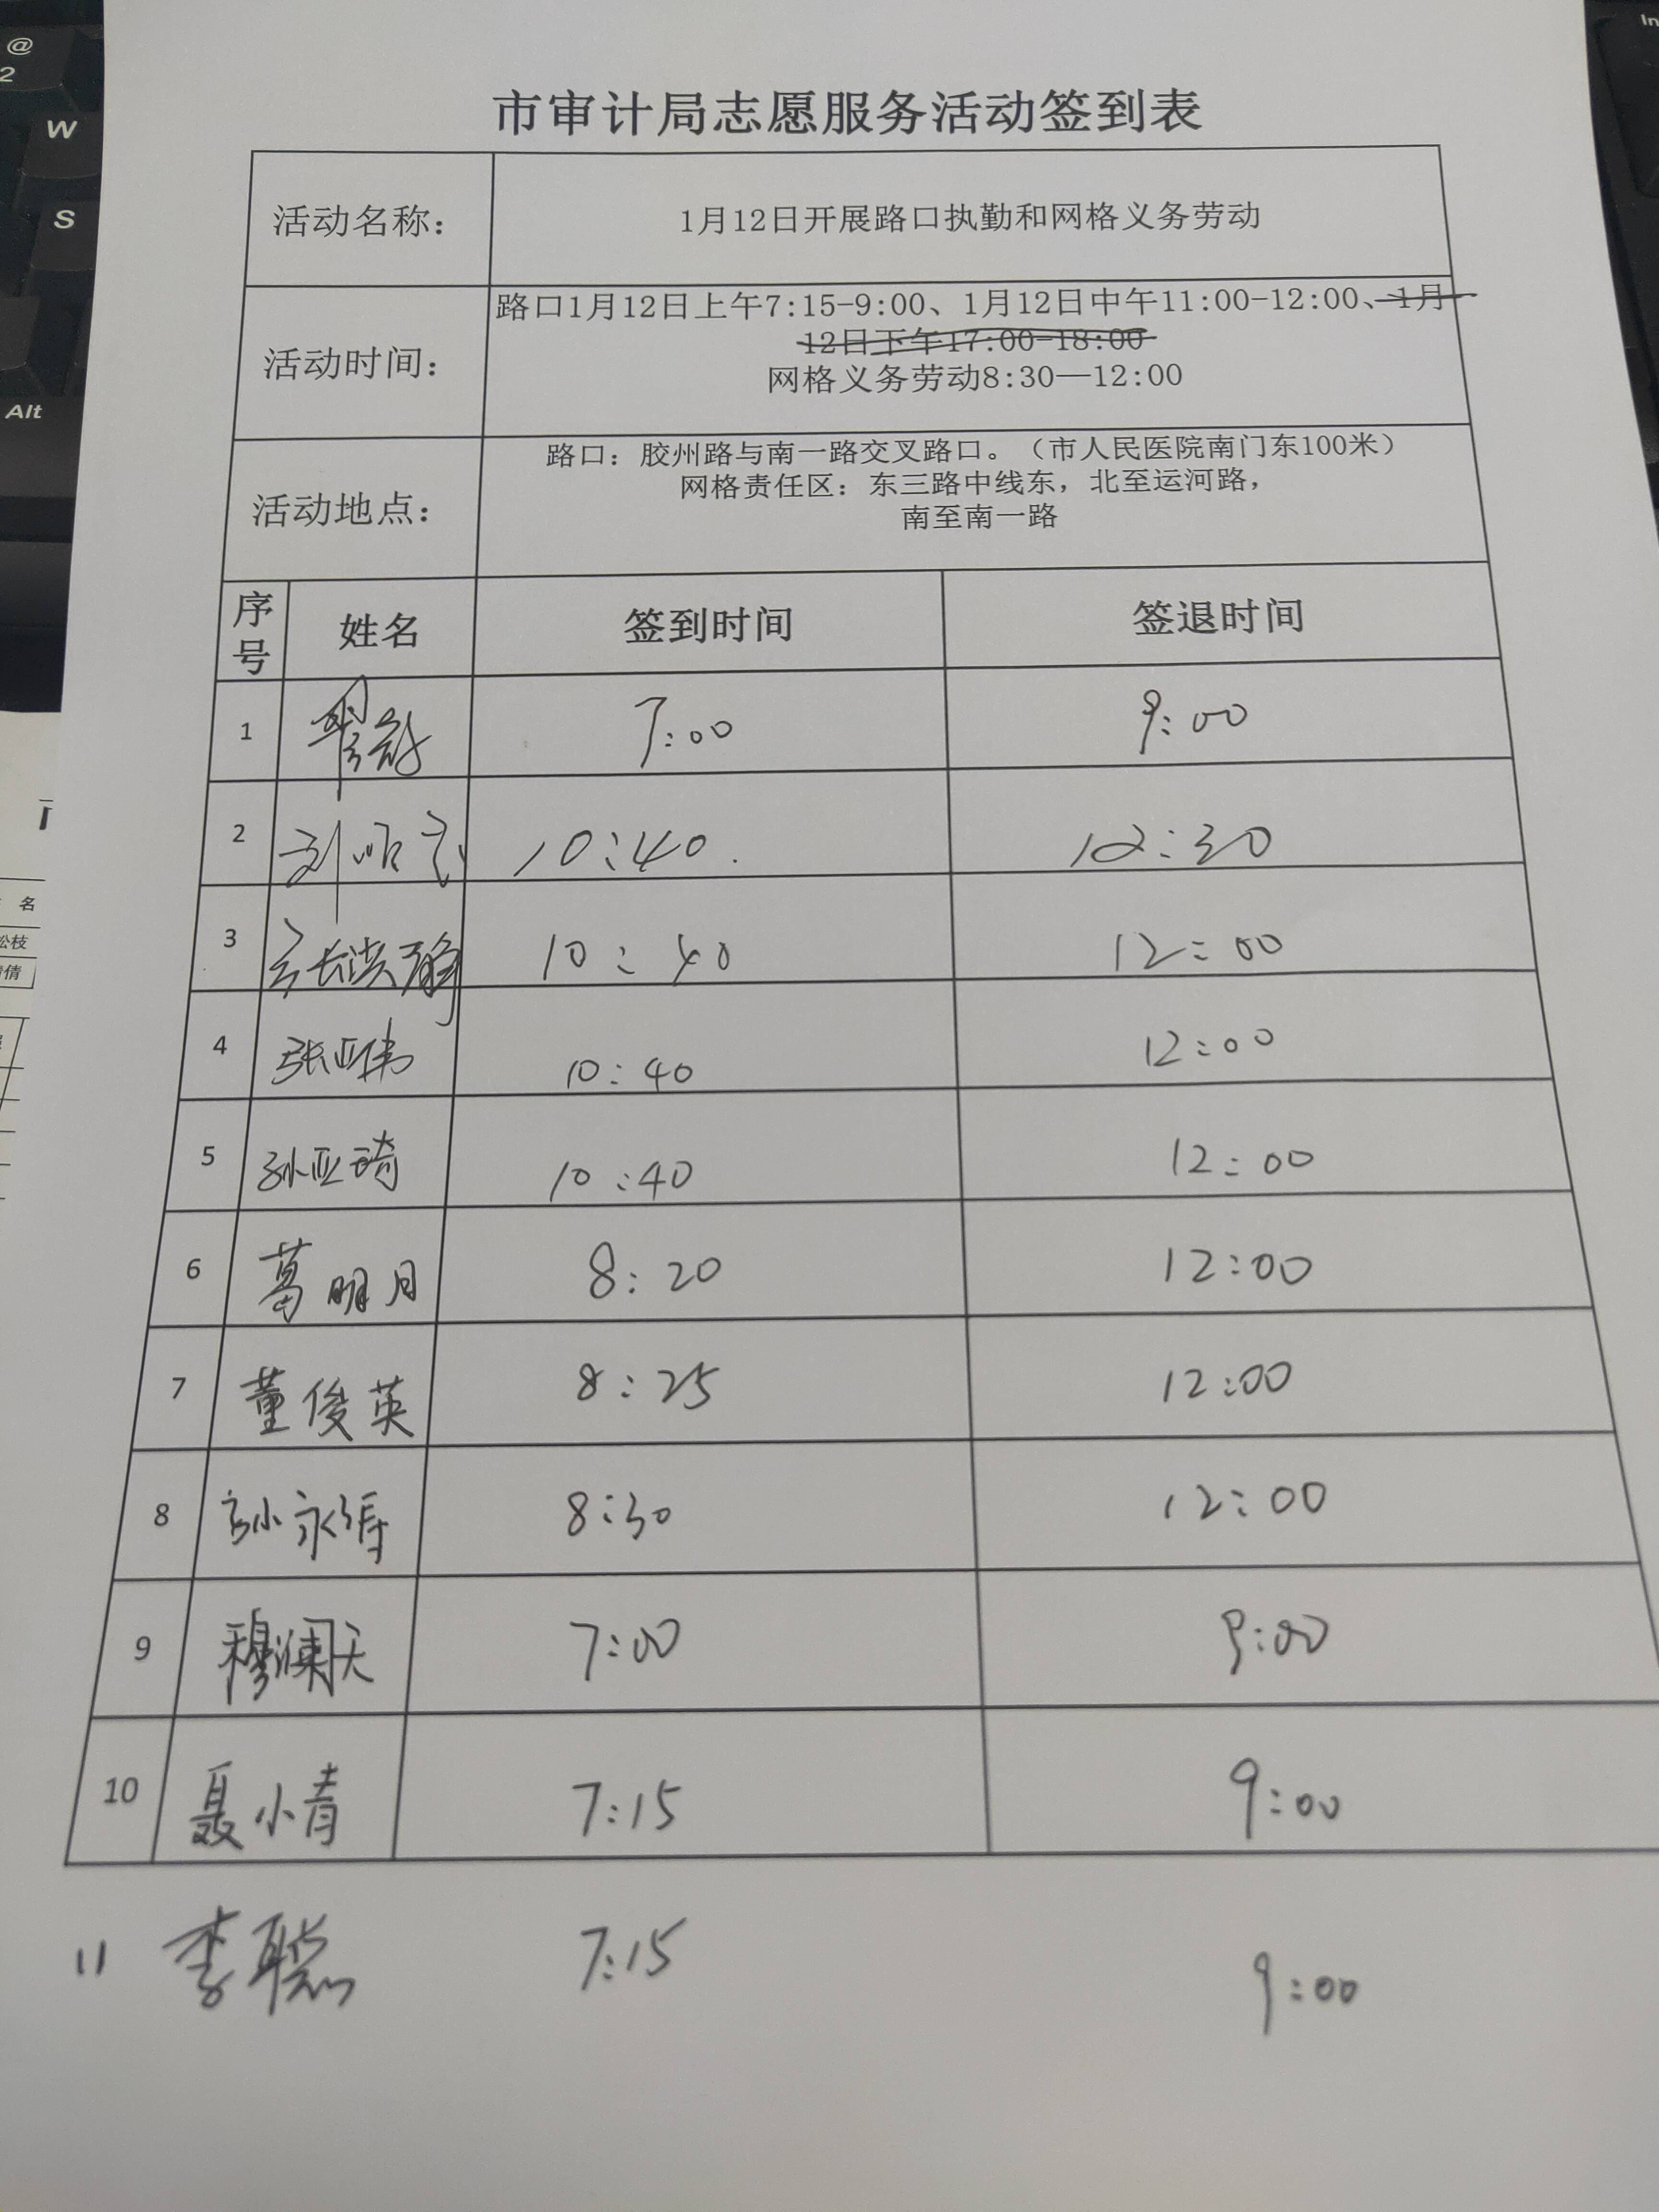 市审计局志愿服务活动签到表
活动名称：
1月12日开展路口执勤和网格义务劳动
活动时间：
路口1月12日上午7:15-9:00、1月12日中午11:00-12:00、1月
12日下午17:00-18:00
网格义务劳动8:30—12:00
活动地点：
路口：胶州路与南一路交叉路口。（市人民医院南门东100米）
网格责任区：东三路中线东，北至运河路，
南至南一路
序号 姓名 签到时间 签退时间
1 7:00 9:00
2 10:40 12:30
3 10:40 12:00
4 张亚伟 10:40 12:00
5 孙亚琦 10:40 12:00
6 葛明月 8:20 12:00
7 董俊英 8:25 12:00
8 8:30 12:00
9 穆澜天 7:00 9:00
10 聂小青 7:15 9:00
11 李聪 7:15 9:00
@
2
W
S
Alt
In
名
松枝
倩